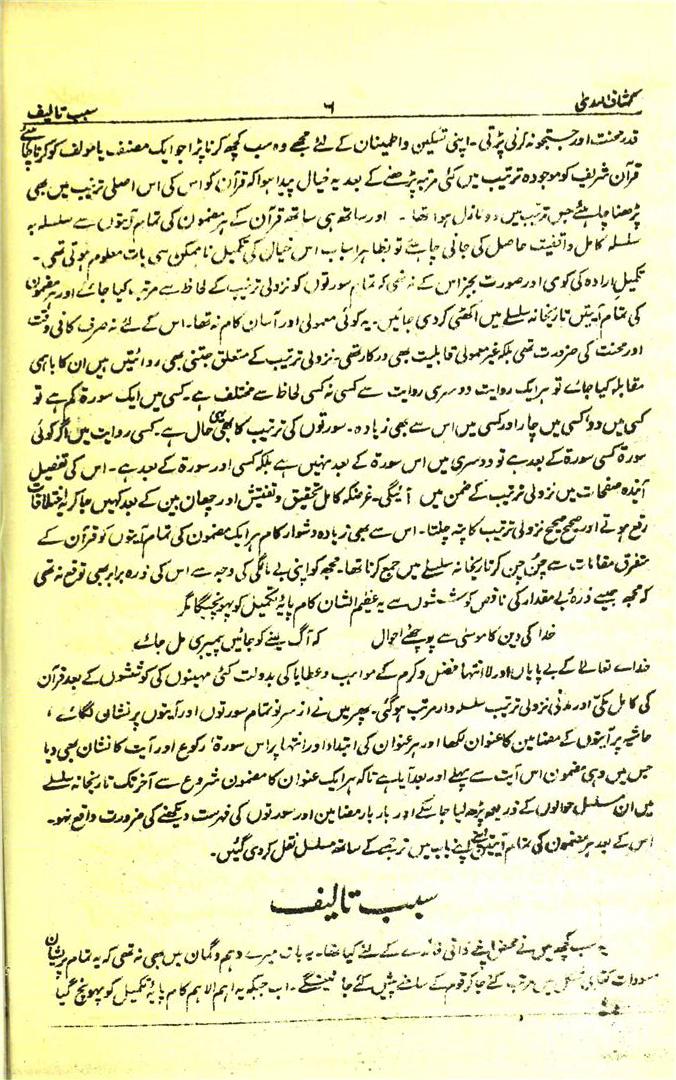 کشاف الہدیٰ ۶ سبب تالیف
قدر محنت اور جستجو نہ کرنی پڑتی۔ اپنی تسکین و اطمینان کے لئے مجھے وہ سب کچھ کرنا پڑا جو ایک مصنف یا مولف کو کرنا چاہئے
قرآن شریف کو موجودہ ترتیب میں کئی مرتبہ پڑھنے کے بعد یہ خیال پیدا ہوا کہ قرآن کو اس کی اس اصلی ترتیب میں بھی
پڑھنا چاہئے جس ترتیب میں وہ نازل ہوا تھا۔ اور ساتھ ہی ساتھ قرآن کے ہر مضمون کی تمام آیتوں سے سلسلہ بہ
سلسلہ کامل واقفیت حاصل کی جانی چاہئے تو بظاہر اسباب اس خیال کی تکمیل ناممکن سی بات معلوم ہوتی تھی۔
تکمیل ارادہ کی کوئی اور صورت بجز اس کے نہ تھی کہ تمام سورتوں کو نزولی ترتیب کے لحاظ سے مرتب کیا جائے اور ہر مضمون
کی تمام آیتیں تاریخانہ سلسلے میں اکٹھی کردی جائیں۔ یہ کوئی معمولی اور آسان کام نہ تھا۔ اس کے لئے نہ صرف کافی وقت
اور محنت کی ضرورت تھی بلکہ غیر معمولی قابلیت بھی درکار تھی۔ نزولی ترتیب کے متعلق جتنی بھی روائتیں ہیں ان کا باہمی
مقابلہ کیا جائے تو ہر ایک روایت دوسری روایت سے کسی نہ کسی لحاظ سے مختلف ہے۔ کسی میں ایک سورۃ کم ہے تو
کسی میں دو کسی میں چار اور کسی میں اس سے بھی زیادہ۔ سورتوں کی ترتیب کا بھی یہی حال ہے۔ کسی روایت میں اگر کوئی
سورۃ کسی سورۃ کے بعد ہے تو دوسری میں اس سورۃ کے بعد نہیں ہے بلکہ کسی اور سورۃ کے بعد ہے۔ اس کی تفصیل
آیندہ صفحات میں نزولی ترتیب کے ضمن میں آئیگی۔ غرضکہ کامل تحقیق و تفتیش اور چھان بین کے بعد کہیں جاکر یہ اختلافات
رفع ہوتے اور صحیح صحیح نزولی ترتیب کا پتہ چلتا۔ اس سے بھی زیادہ دشوار کام ہر ایک مضمون کی تمام آیتوں کو قرآن کے
متفرق مقامات سے چُن چُن کر تاریخانہ سلسلے میں جمع کرنا تھا۔ مجھ کو اپنی بے مائگی کی وجہ سے اس کی ذرہ برابر بھی توقع نہ تھی
کہ مجھ جیسے ذرہ بے مقدار کی ناقص کوششوں سے یہ عظیم الشان کام پایۂ تکمیل کو پہونچیگا مگر
خدا کی دین کا موسیٰ سے پوچھئے احوال کہ آگ لینے کو جائیں پیمبری مل جائے
خدائے تعالیٰ کے بے پایاں اور لا انتہا فضل و کرم کے مواہب و عطایا کی بدولت کئی مہینوں کی کوششوں کے بعد قرآن
کی کامل مکی اور مدنی نزولی ترتیب سلسلہ وار مرتب ہوگئی۔ پھر میں نے از سر نو تمام سورتوں اور آیتوں پر نشانی لگائے،
حاشیہ پر آیتوں کے مضامین کا عنوان لکھا اور ہر عنوان کی ابتداء اور انتہا پر اس سورۃ رکوع اور آیت کا نشان بھی دیا
جس میں وہی مضمون اس آیت سے پہلے اور بعد آیا ہے تاکہ ہر ایک عنوان کا مضمون شروع سے آخر تک تاریخانہ سلسلے
میں ان مسلسل حوالوں کے ذریعہ پڑھ لیا جاسکے اور بار بار مضامین اور سورتوں کی فہرست دیکھنے کی ضرورت واقع نہو۔
اس کے بعد ہر مضمون کی تمام آیتیں اپنے اپنے باب میں ترجمے کے ساتھ مسلسل نقل کردی گئیں۔
سبب تالیف
یہ سب کچھ میں نے محض اپنے ذاتی فائدے کے لئے کیا تھا۔ یہ بات میرے وہم و گمان میں بھی نہ تھی کہ یہ تمام پریشان
مسودات کتابی شکل میں مرتب کئے جاکر قوم کے سامنے پیش کئے جائینگے۔ اب جبکہ یہ اہم الاہم کام پایۂ تکمیل کو پہونچ گیا